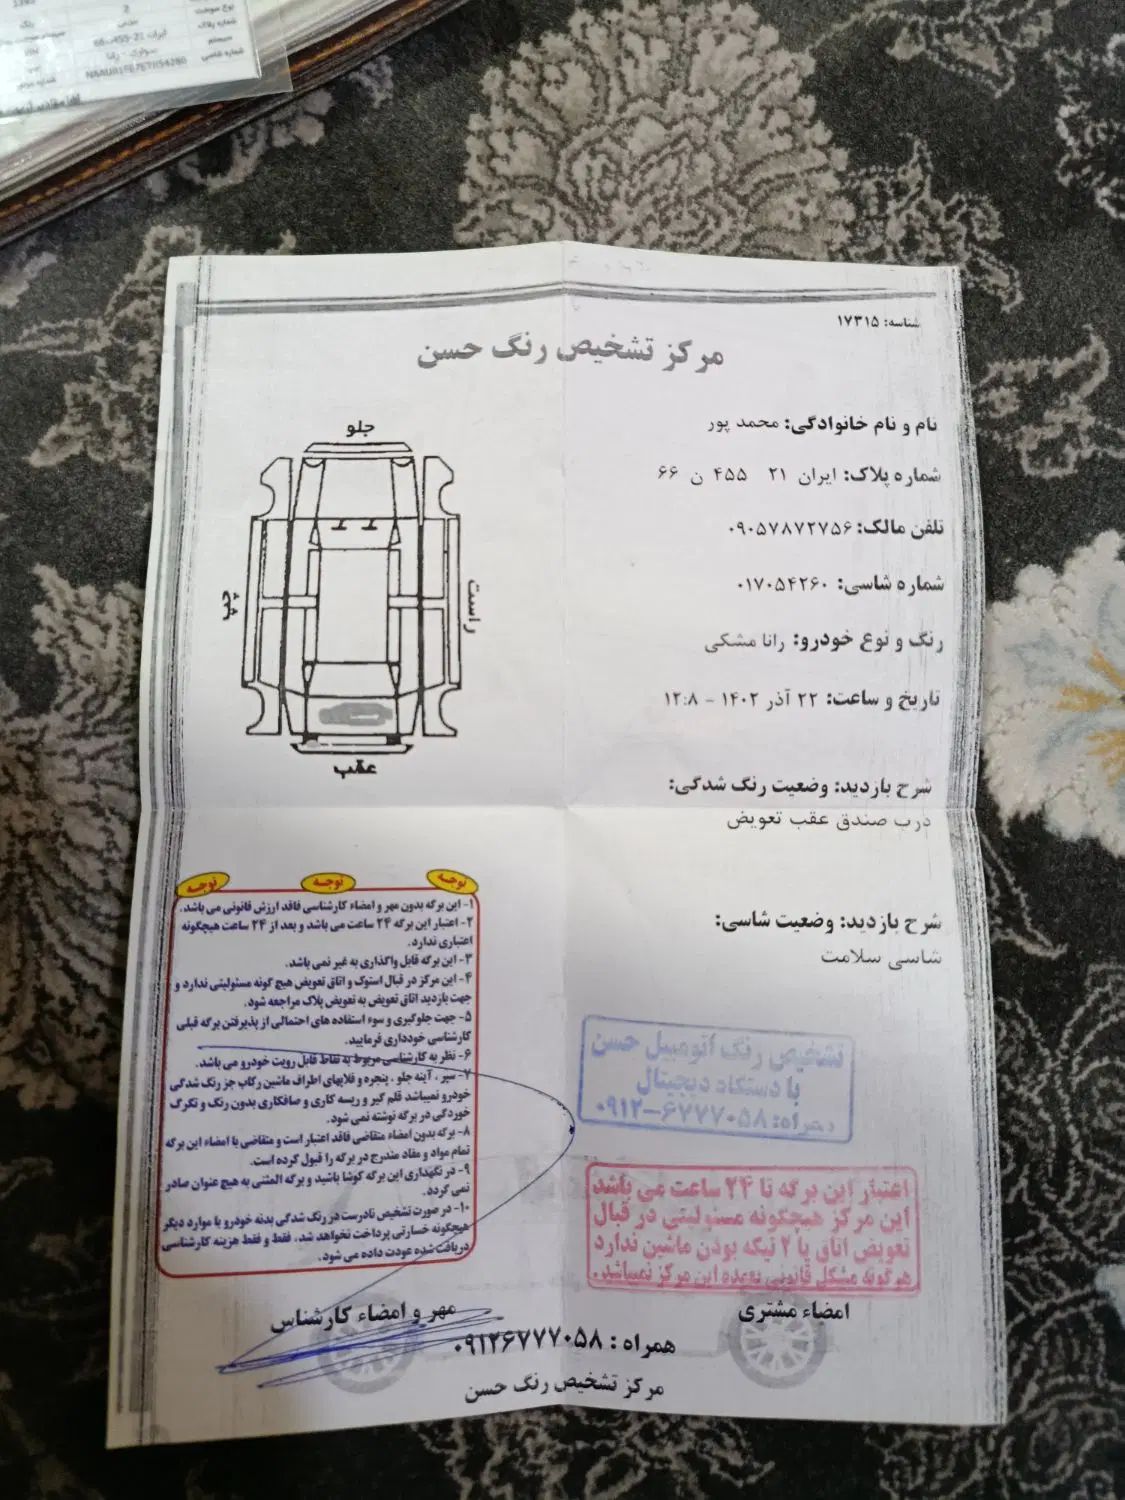 نوع سوخت
رنگ
2
شماره پلاک
ایران 21-455ن66
سیستم
سواری - رانا
شماره شاسی
شناسه: ۱۷۳۱۵
مرکز تشخیص رنگ حسن
نام و نام خانوادگی: محمد پور
شماره پلاک: ایران ۲۱ ۴۵۵ ن ۶۶
تلفن مالک: ۰۹۰۵۷۸۷۲۷۵۶
شماره شاسی: ۰۱۷۰۵۴۲۶۰
رنگ و نوع خودرو: رانا مشکی
تاریخ و ساعت: ۲۲ آذر ۱۴۰۲ - ۱۲:۸
جلو
راست
چپ
عقب
شرح بازدید: وضعیت رنگ شدگی:
درب صندق عقب تعویض
شرح بازدید: وضعیت شاسی:
شاسی سلامت
توجه
توجه
توجه
۱- این برگه بدون مهر و امضاء کارشناسی فاقد ارزش قانونی می باشد.
۲- اعتبار این برگه ۲۴ ساعت می باشد و بعد از ۲۴ ساعت هیچگونه
اعتباری ندارد.
۳- این برگه قابل واگذاری به غیر نمی باشد.
۴- این مرکز در قبال استوک و اتاق تعویض هیچ گونه مسئولیتی ندارد و
جهت بازدید اتاق تعویض به تعویض پلاک مراجعه شود.
۵- جهت جلوگیری و سوء استفاده های احتمالی از پذیرفتن برگه قبلی
کارشناسی خودداری فرمایید.
۶- نظر به کارشناسی مربوط به نقاط قابل رویت خودرو می باشد.
۷- سپر ، آینه جلو ، پنجره و قلابهای اطراف ماشین رکاب جز رنگ شدگی
خودرو نمیباشد قلم گیر و ریسه کاری و صافکاری بدون رنگ و تگرگ
خوردگی در برگه نوشته نمی شود.
۸- برگه بدون امضاء متقاضی فاقد اعتبار است و متقاضی با امضاء این برگه
تمام مواد و مفاد مندرج در برگه را قبول کرده است.
۹- در نگهداری این برگه کوشا باشید و برگه المثنی به هیچ عنوان صادر
نمی گردد.
۱۰- در صورت تشخیص نادرست در رنگ شدگی بدنه خودرو یا موارد دیگر
هیچگونه خسارتی پرداخت نخواهد شد. فقط و فقط هزینه کارشناسی
دریافت شده عودت داده می شود.
تشخیص رنگ اتومبیل حسن
با دستگاه دیجیتال
همراه: ۰۹۱۲-۶۷۷۷۰۵۸
اعتبار این برگه تا ۲۴ ساعت می باشد
این مرکز هیچگونه مسئولیتی در قبال
تعویض اتاق یا ۲ تیکه بودن ماشین ندارد
هرگونه مشکل قانونی بعهده این مرکز نمیباشد.
امضاء مشتری
مهر و امضاء کارشناس
همراه : ۰۹۱۲۶۷۷۷۰۵۸
مرکز تشخیص رنگ حسن